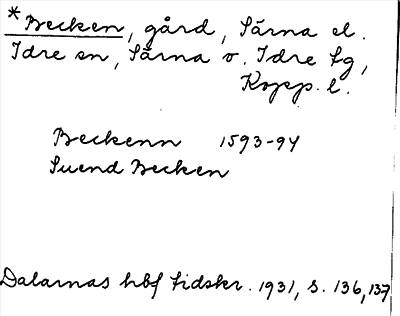 *Becken, gård, Särna el.
Idre sn, Särna o. Idre tg,
Kopp. l.
Beckenn 1593-94
Suend Becken
Dalarnas hbf tidskr. 1931, s. 136, 137